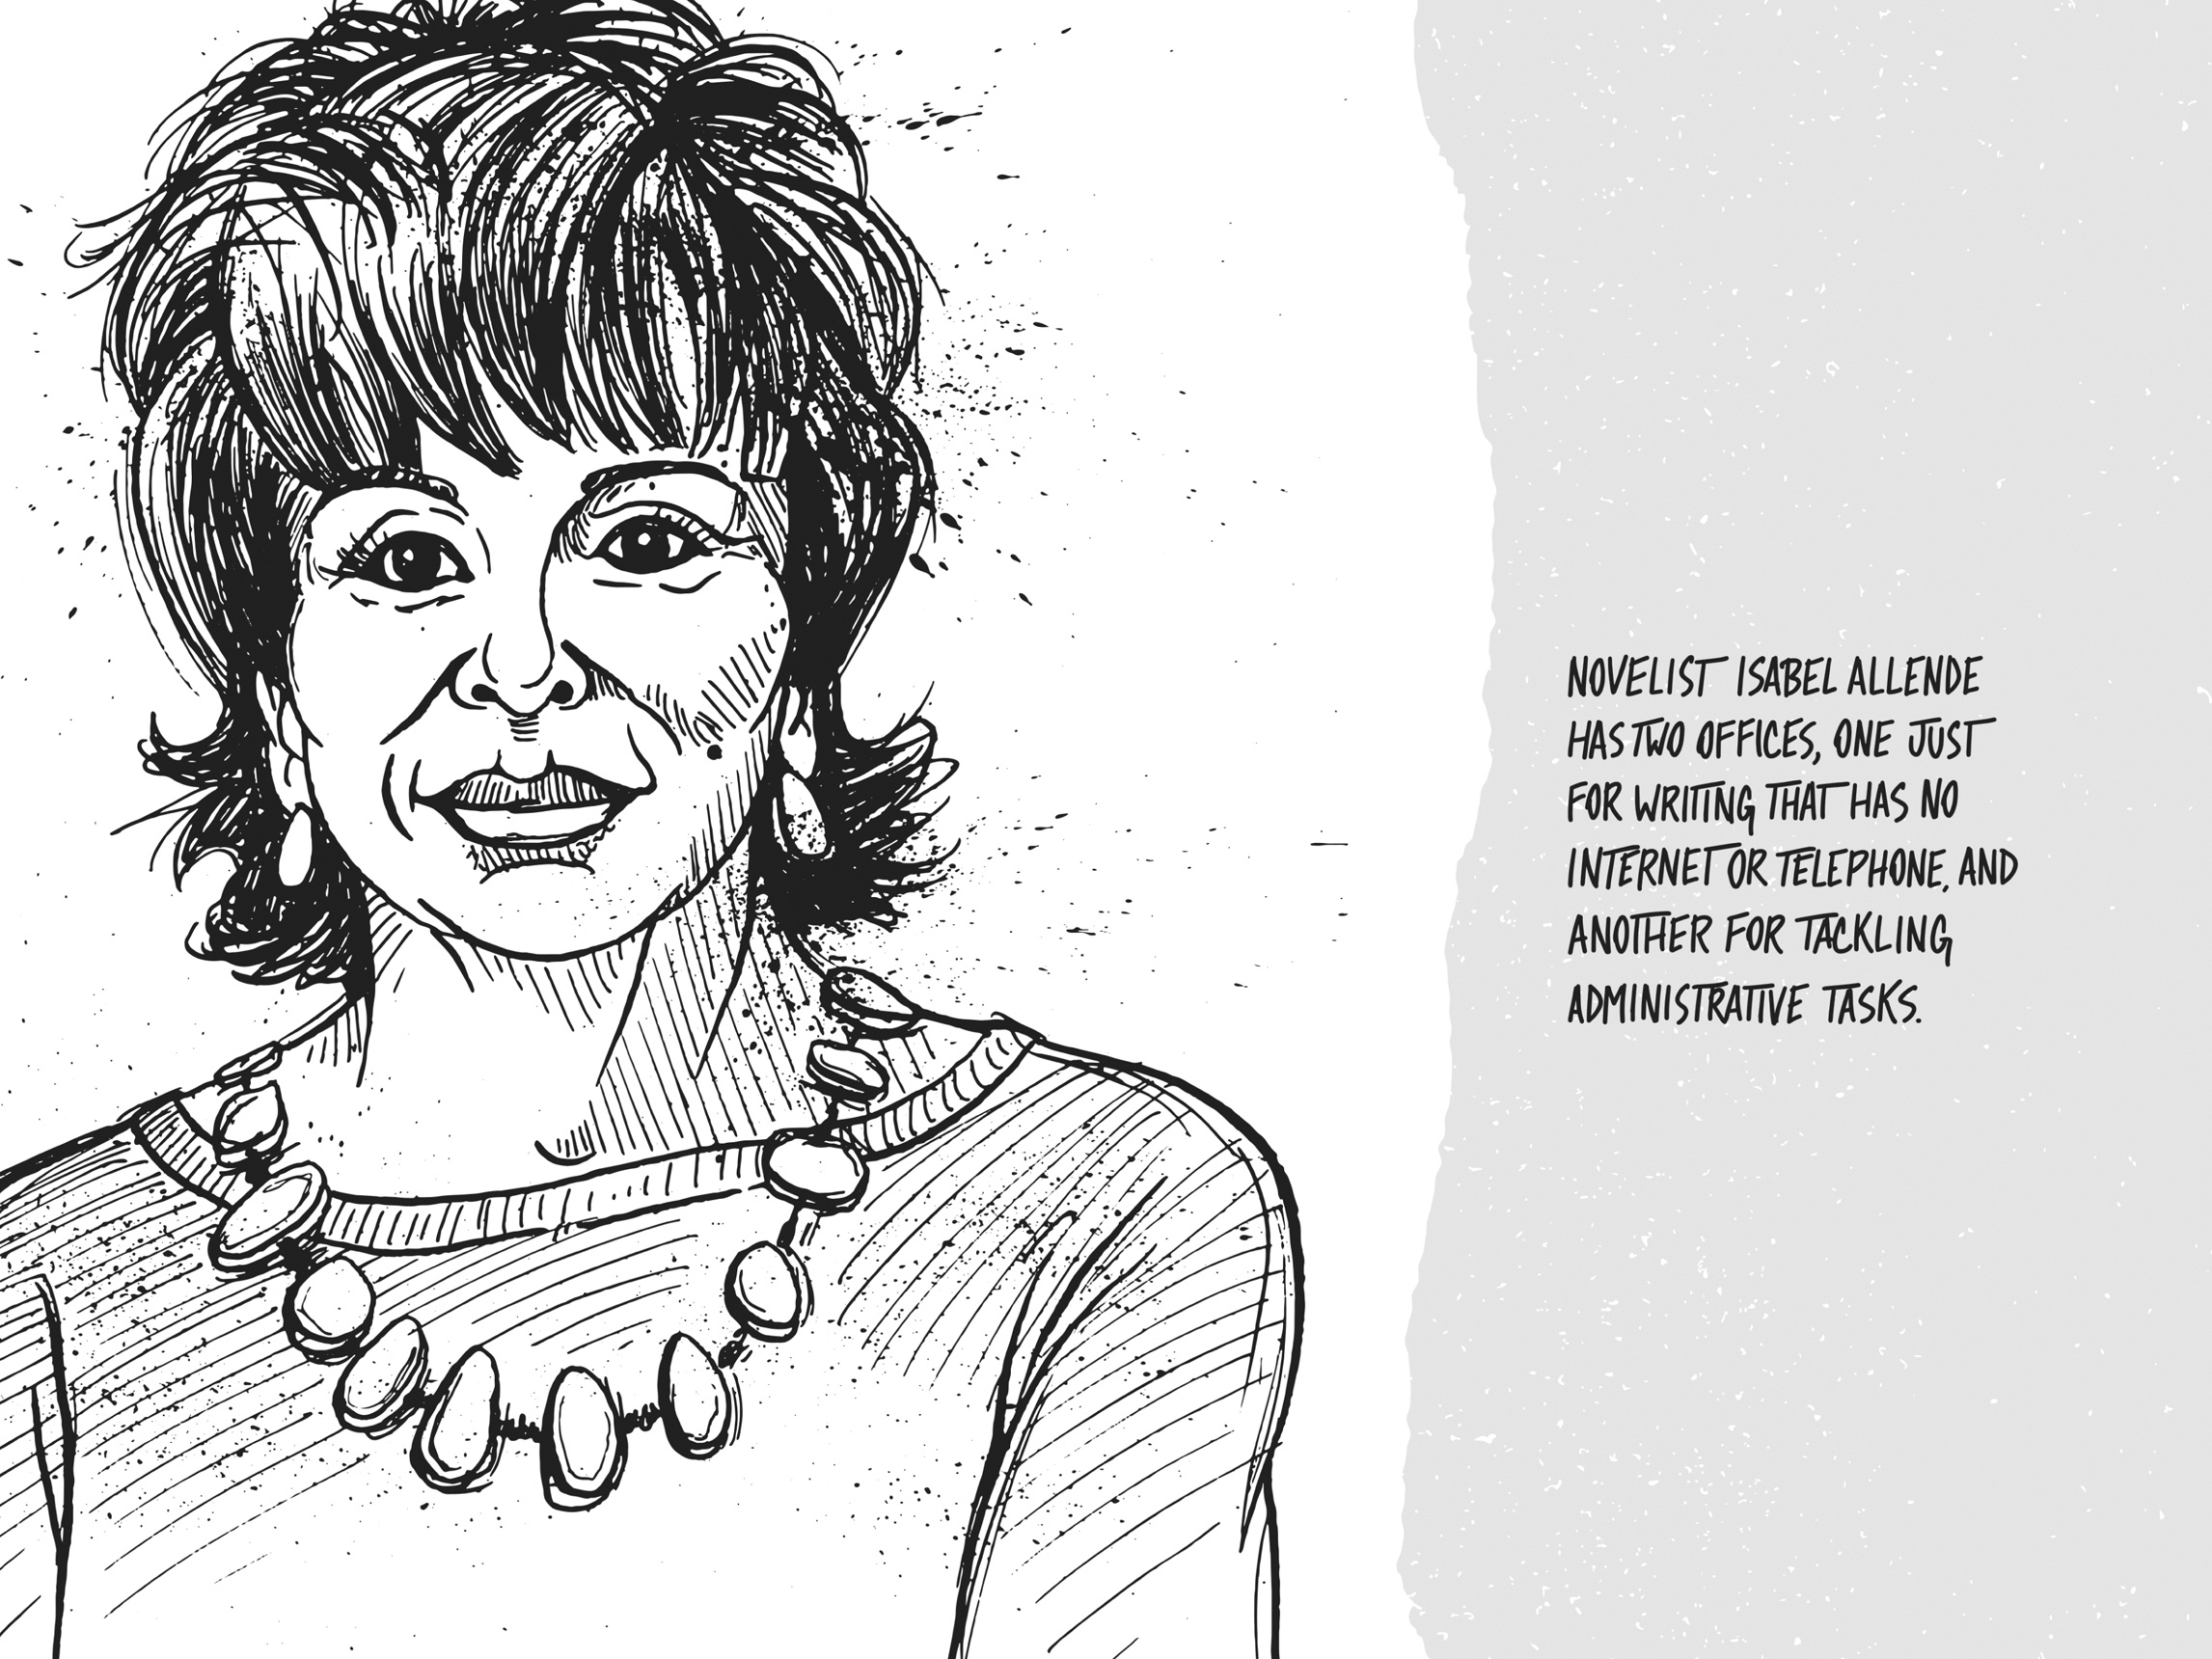 NOVELIST ISABEL ALLENDE
HAS TWO OFFICES, ONE JUST
FOR WRITING THAT HAS NO
INTERNET OR TELEPHONE, AND
ANOTHER FOR TACKLING
ADMINISTRATIVE TASKS.